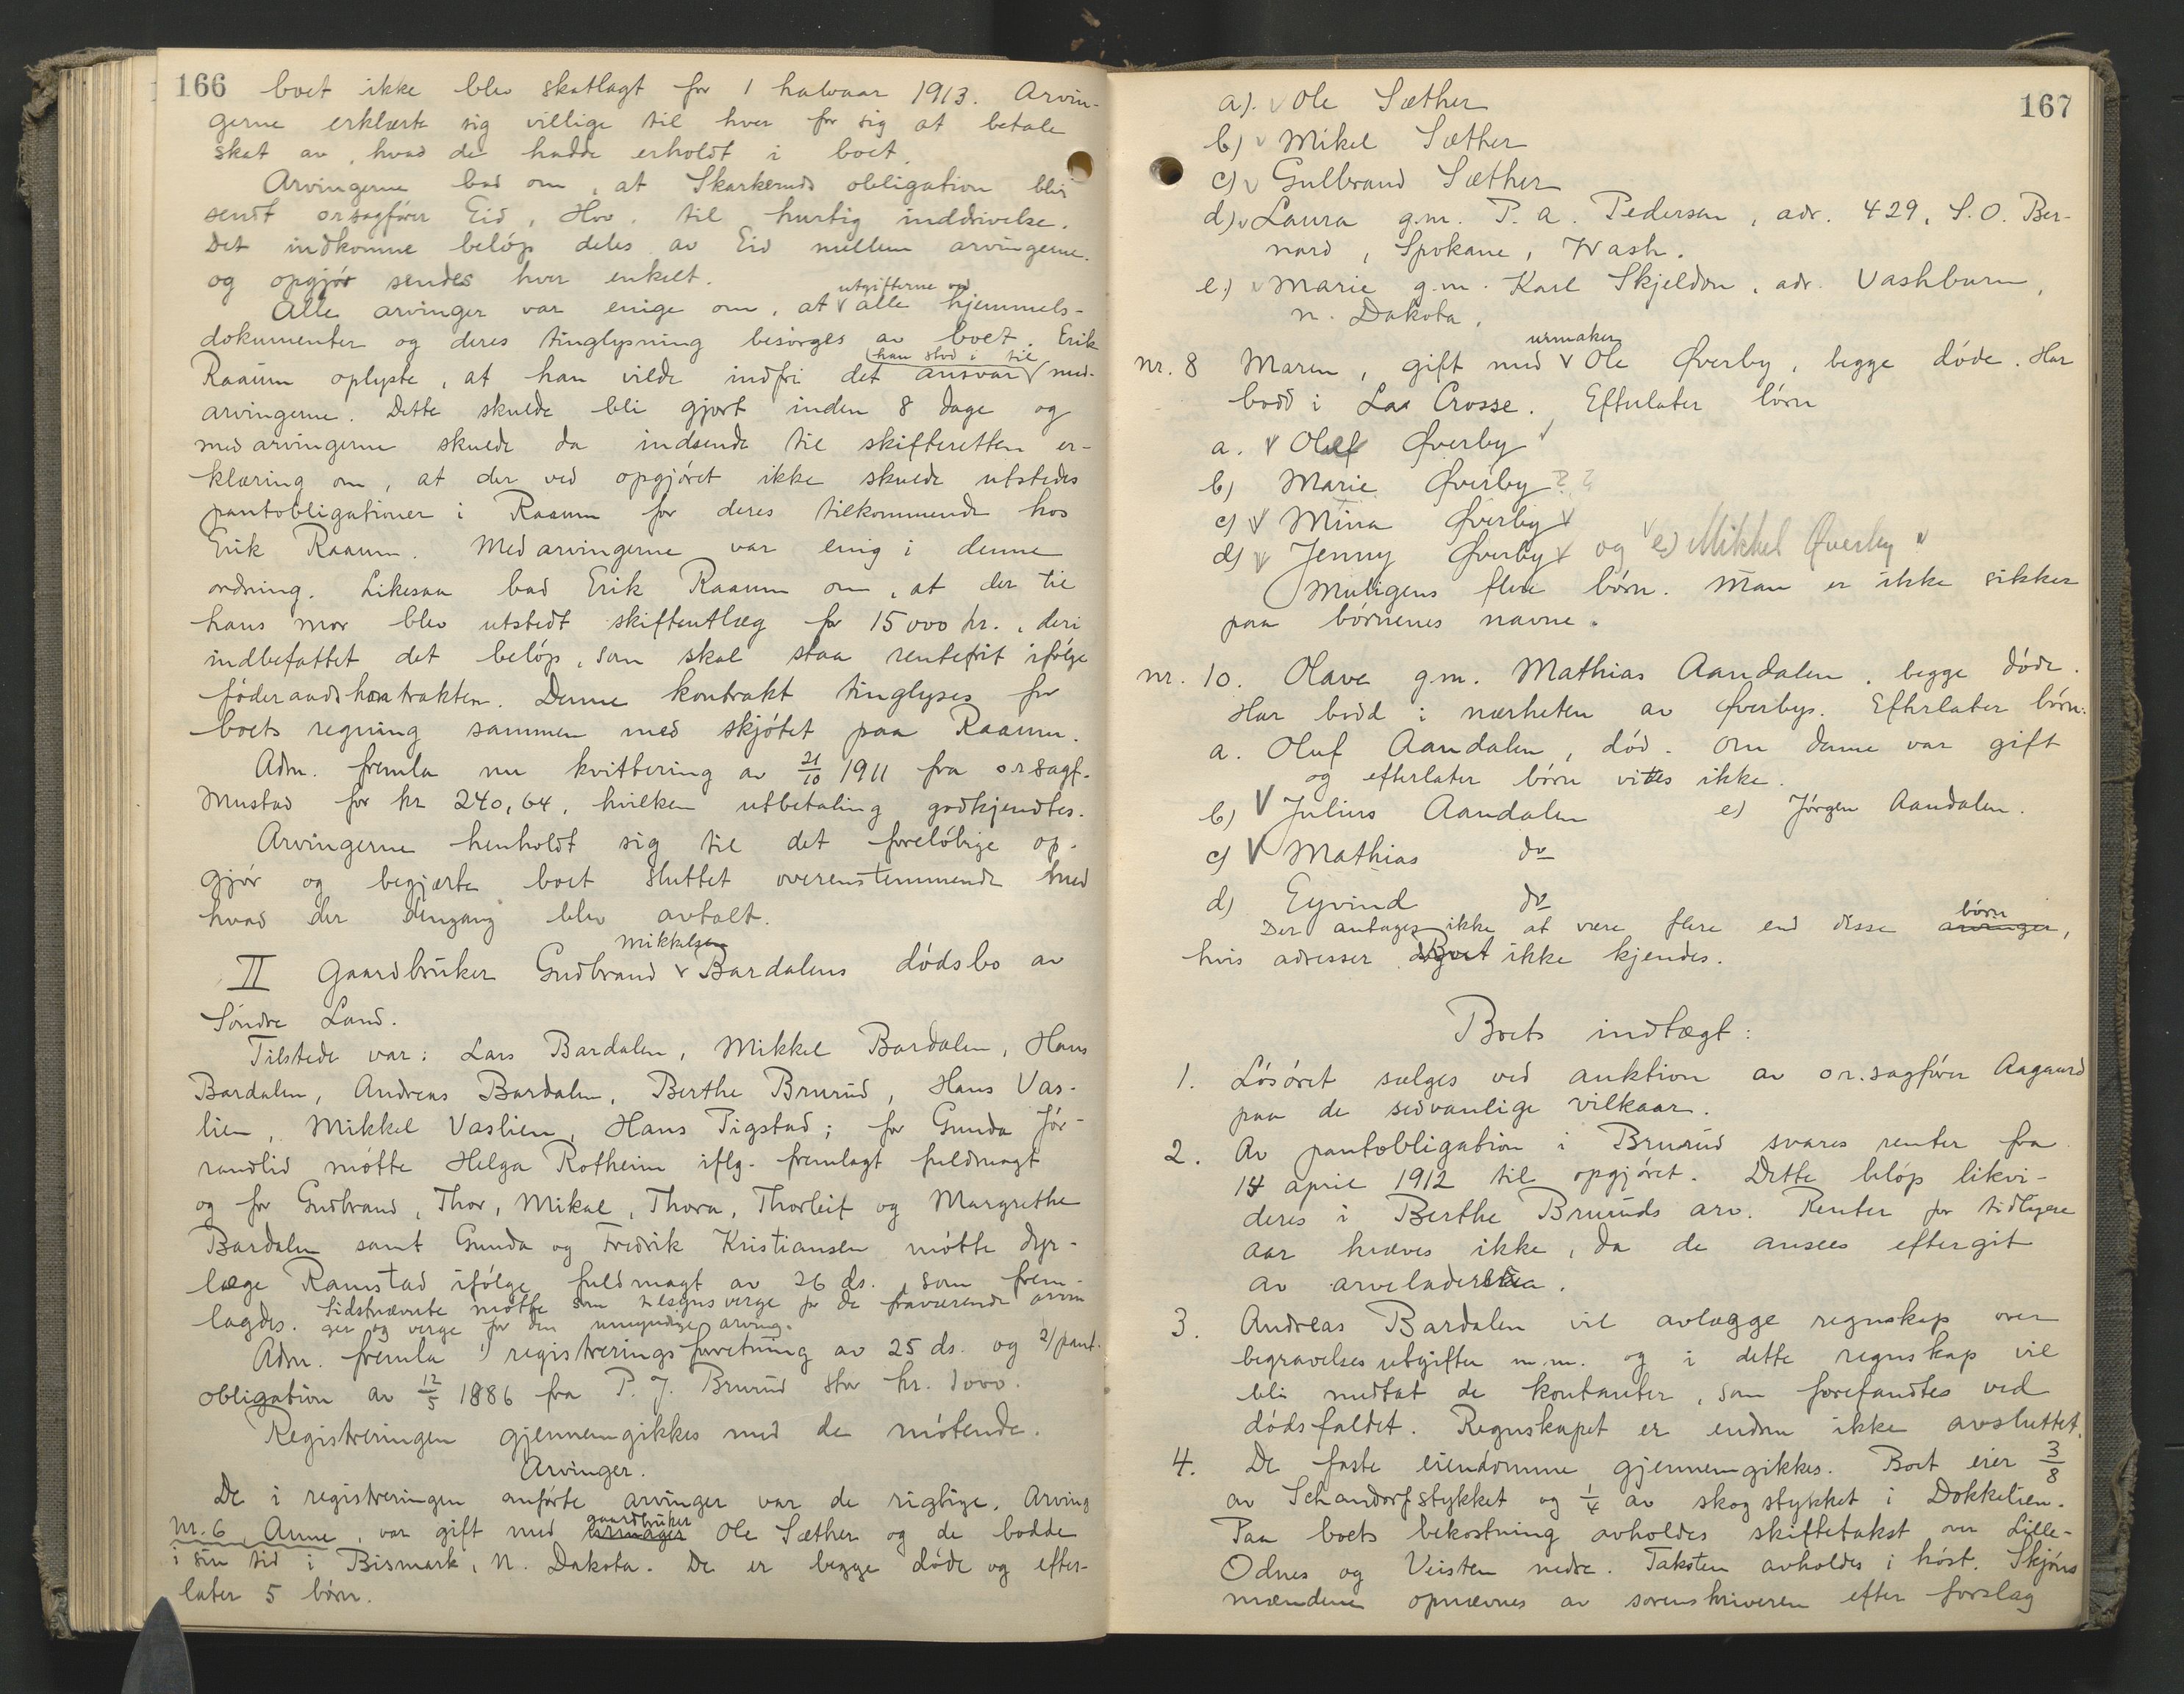 166 boet ikke blev skatlagt for 1 halvaar 1913. Arvin-
gerne erklærte sig villige til hver for sig at betale
skat av, hvad de hadde erholdt i boet.
Arvingerne bad om, at Skarkeruds obligation blir
sendt orsagfører Eid, Hov, til hurtig inddrivelse.
Det indkomne beløp deles av Eid mellem arvingerne.
og opgjør sendes hver enkelt.
utgifterne ved
Alle arvinger var enige om, at v alle hjemmels-
dokumenter og deres tinglysning besørges av boet. Erik
han stod i til
Raaum oplyste, at han vilde indfri det ansvar v med-
arvingerne. Dette skulde bli gjort inden 8 dage og
medarvingerne skulde da indsende til skifteretten er-
klæring om, at der ved opgjøret ikke skulde utstedes
pantobligationer i Raaum for deres tilkommende hos
Erik Raaum. Medarvingerne var enig i denne
ordning. Likesaa bad Erik Raaum om, at der til
hans mor blev utstedt skifteutlæg for 15000 kr., deri
indbefattet det beløp, som skal staa rentefrit ifølge
føderaadskontrakten. Denne kontrakt tinglyses for
boets regning sammen med skjøtet paa Raaum.
Adm. fremla nu kvittering av 21/10 1911 fra orsagf.
Mustad for kr 240,64, hvilken utbetaling godkjendtes.
Arvingerne henholdt sig til det foreløbige op-
gjør og begjærte boet sluttet overenstemmende med
hvad der dengang blev avtalt.
Mikkelsen
II Gaardbruker Gudbrand v Bardalens dødsbo av
Søndre Land.
Tilstede var: Lars Bardalen, Mikkel Bardalen, Hans
Bardalen, Andreas Bardalen, Berthe Brurud, Hans Vas-
lien, Mikkel Vaslien, Hans Tigstad; for Gunda Jør-
randlid møtte Helga Rotheim iflg. fremlagt fuldmagt
og for Gudbrand, Thor, Mikal, Thora, Thorleif og Margrethe
Bardalen samt Gunda og Fredrik Kristiansen møtte dyr-
læge Ramstad ifølge fuldmagt av 26 ds., som frem-
lagdes. Sidstnævnte møtte som tilsynsverge for de fraværende arvin
ger og verge for den umyndige arving.
Adm. fremla 1) registreringsforretning av 25 ds. og 2) pant-
obligation av 12/5 1886 fra P. J. Brurud stor kr. 1000.
Registreringen gjennemgikkes med de møtende.
Arvinger.
De i registreringen anførte arvinger var de rigtige. Arving
gaardbruker
nr. 6, Anne, var gift med urmager Ole Sæther og de bodde
i sin tid i Bismark, N. Dakota. De er begge døde og efter-
later 5 børn.
167
a). v Ole Sæther
b) v Mikel Sæther
c) v Gulbrand Sæther
d) v Laura g.m. P. A. Pedersen, adr. 429, S.O. Ber-
nard, Spokane, Wash.
e.) v Marie g.m. Karl Skjeldon, adr. Vashburn,
N. Dakota.
urmaker
nr. 8 Maren, gift med v Ole Øverby, begge døde. Har
bodd i Las Crosse. Efterlater børn
a. v Oluf Øverby v
b) Marie Øverby ? ?
c) v Mina Øverby v
d) v Jenny Øverby v og v e) Mikkel Øverby "
Muligens flere børn. Man er ikke sikker
paa børnenes navne.
nr. 10. Olave g.m. Mathias Aandalen, begge døde.
Har bodd i nærheten av Øverbys. Efterlater børn:
a. Oluf Aandalen, død. Om denne var gift
og efterlater børn vites ikke.
b) v Julius Aandalen e) Jørgen Aandalen.
c) v Mathias do
d) Eyvind do
børn
Der antages ikke at være flere end disse arvinger,
hvis adresser ikke kjendes.
Boets indtægt:
1. Løsøret sælges ved auktion av or.sagfører Aagaard
paa de sedvanlige vilkaar.
2. Av pantobligation i Brurud svares renter fra
14 april 1912 til opgjøret. Dette beløp likvi-
deres i Berthe Bruruds arv. Renter for tidligere
aar kræves ikke, da de ansees eftergit
av arveladeren.
3. Andreas Bardalen vil avlægge regnskap over
begravelsesutgifter m.m. og i dette regnskap vil
bli medtat de kontanter, som forefandtes ved
dødsfaldet. Regnskapet er endnu ikke avsluttet.
4. De faste eiendomme gjennemgikkes. Boet eier 3/8
av Schandorfstykket og 1/4 av skogstykket i Dokkelien.
Paa boets bekostning avholdes skiftetakst over Lille-
Odnes og Veisten nedre. Taksten avholdes i høst. Skjøns
mændene opnævnes av sorenskriveren efter forslag